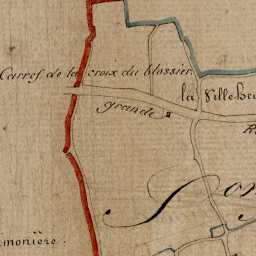 Carref. de la croix du blossier.
la Ville
grande
monière.